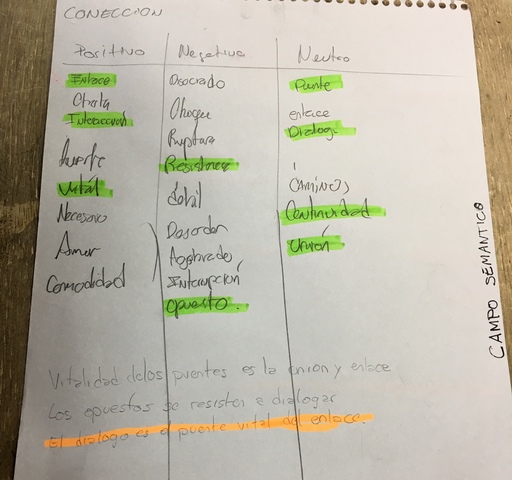 CONECCION
Positivo Negativo Neutro
Enlace
Charla
Interacción
fuerte
Vital
Necesario
Amor
Comodidad
Disociado
Choque
Ruptura
Resistencia
débil
Desorden
Interrupción
Opuesto.
Puente
enlace
Dialogo
CAMINO,
Continuidad
Unión
CAMPO SEMANTICO
Vitalidad delos puentes es la union y enlace
Los opuestos se resisten a dialogar
El dialogo es el puente vital del enlace.